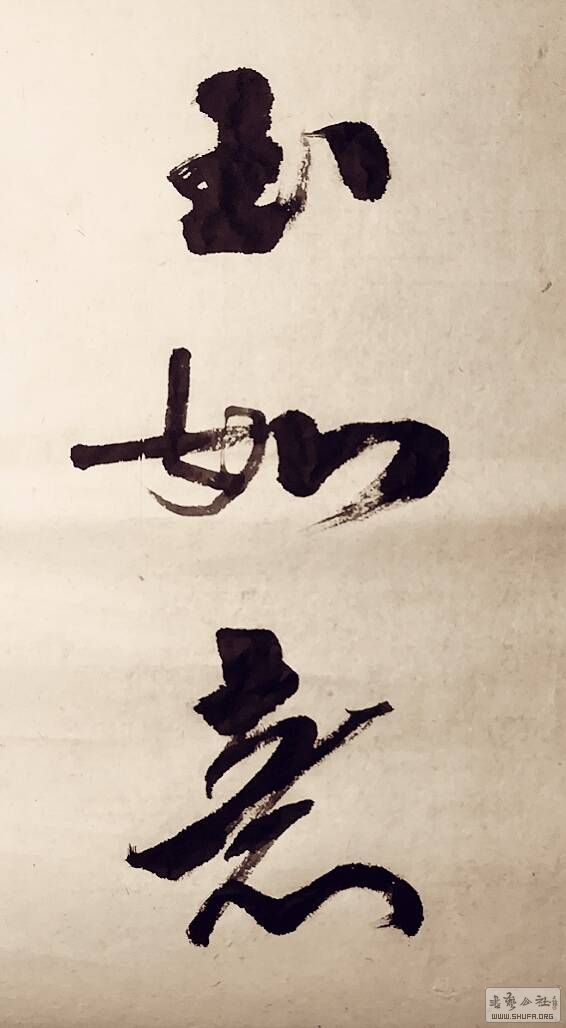 玉如意
書藝公社
WWW.SHUFA.ORG